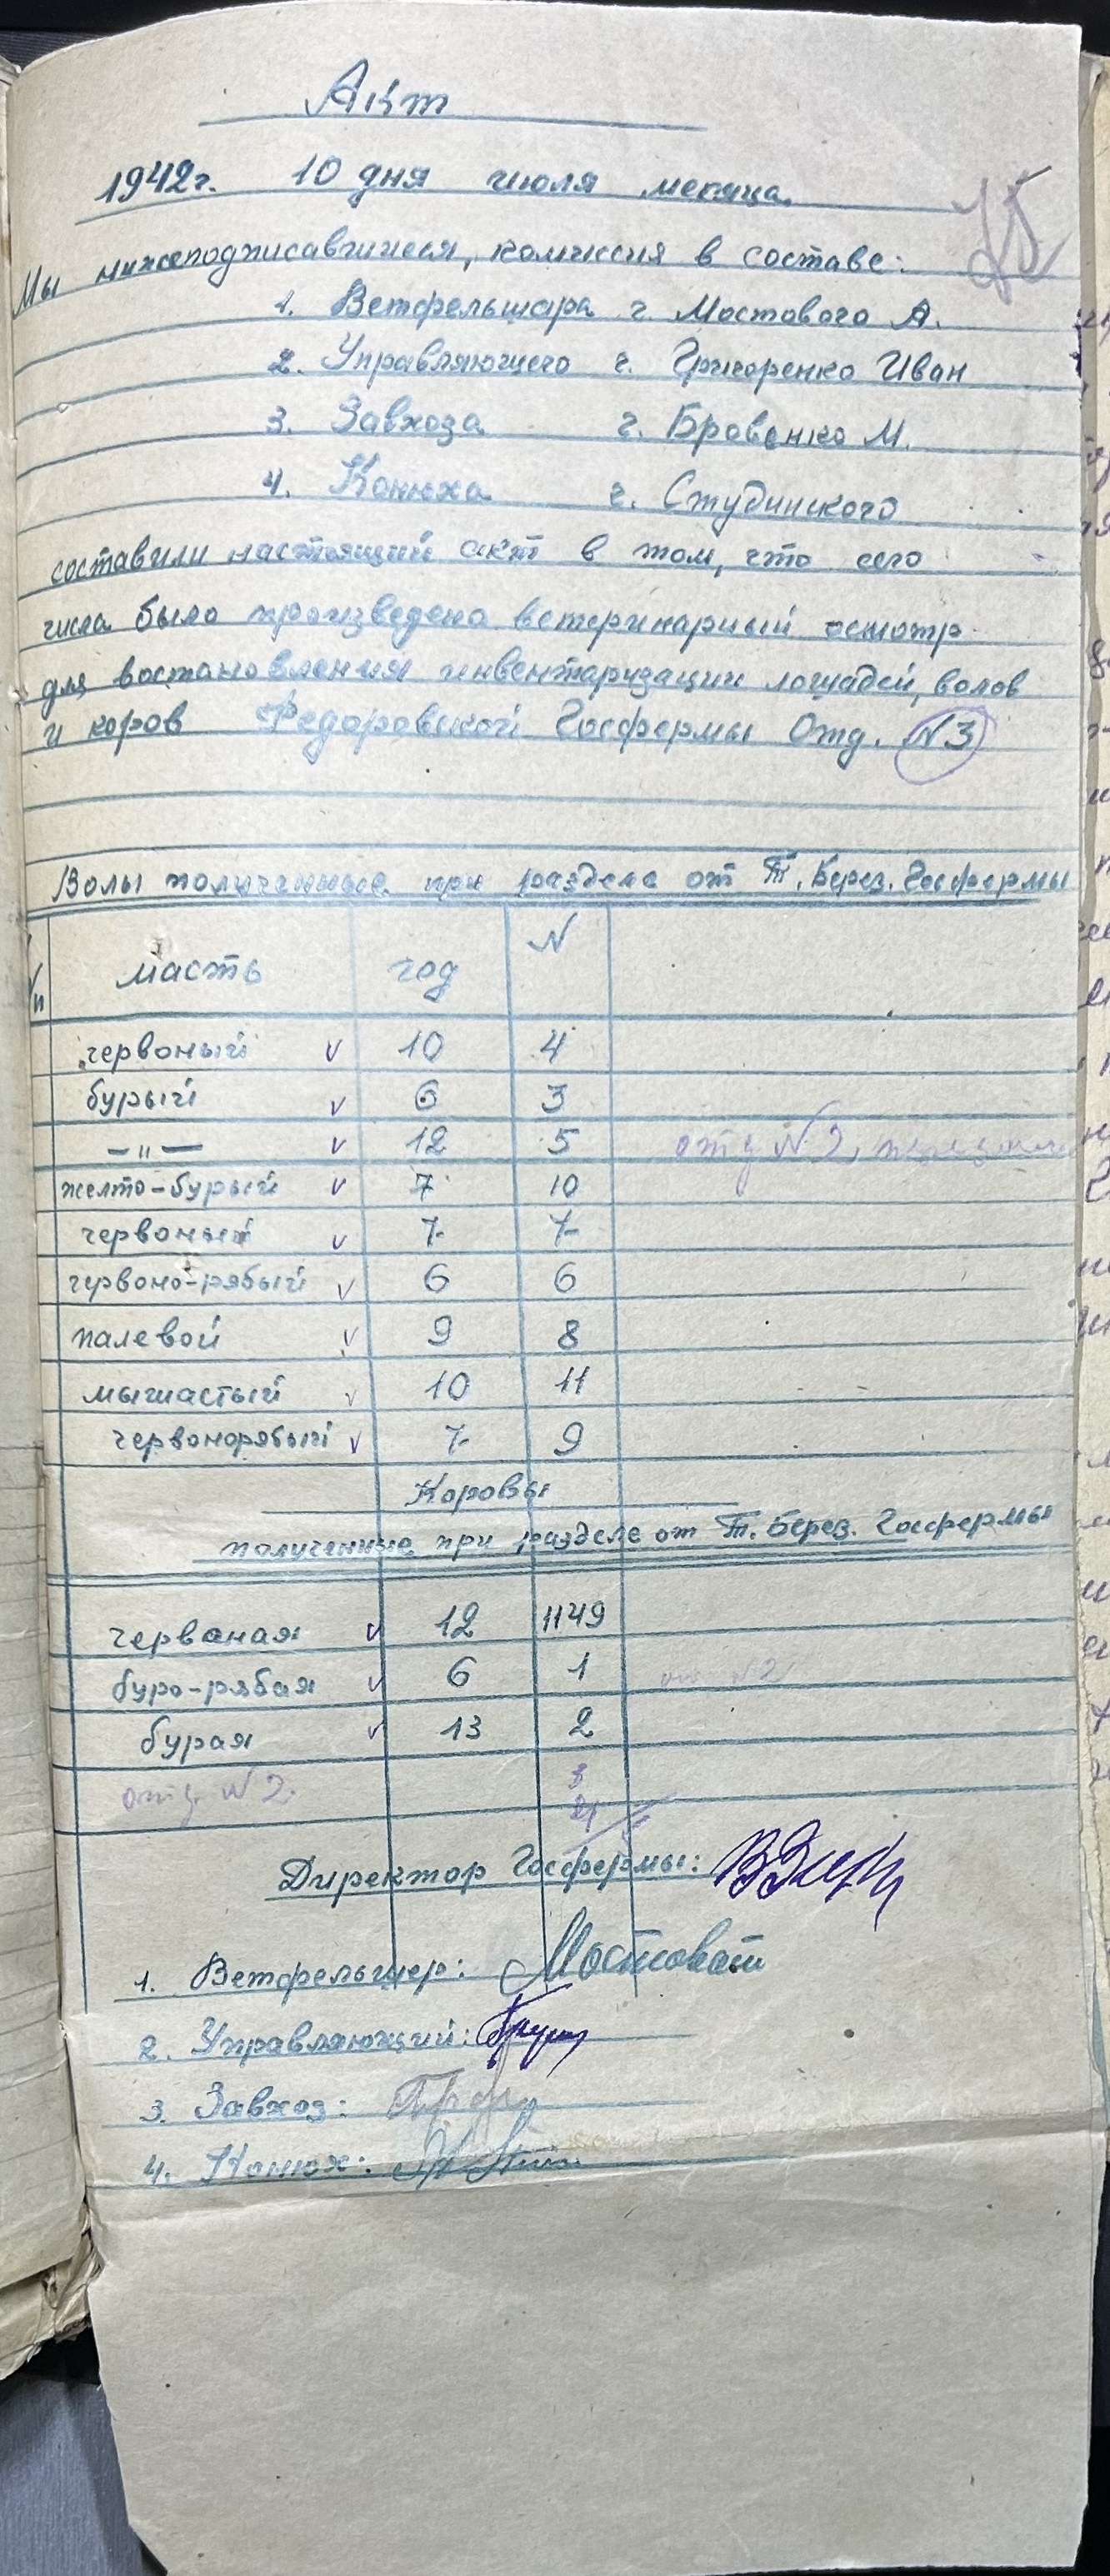 Акт
1942г. 10 дня июля месяца.
Мы нижеподписавшиеся, комиссия в составе:
1. Ветфельшара г. Мостового А.
2. Управляющего г. Григоренко Иван
3. Завхоза г. Бровенко М.
4. Конюха г. Студинского
составили настоящий акт в том, что сего
числа было произведено ветеринарный осмотр
для востановления инвентаризации лошадей, волов
и коров Федоровской Госфермы Отд. N3
Волы полученные при разделе от Т. Берез. Госфермы
масть год N
червоный v 10 4
бурый v 6 3
—"— v 12 5 отд N 2
желто-бурый v 7 10
червоный v 7 7
червоно-рябый v 6 6
палевой v 9 8
мышастый v 10 11
червонорябый v 7 9
Коровы
полученные при разделе от Т. Берез. Госфермы
червоная v 12 1149
буро-рябая v 6 1 отд N2
бурая v 13 2
отд. N 2.
Директор Госфермы:
1. Ветфельшер: Мостовой
2. Управляющий:
3. Завхоз:
4. Конюх: